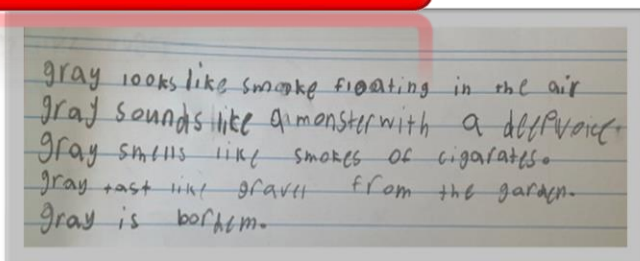 gray looks like smoke floating in the air
gray sounds like a monster with a deep voice.
gray smells like smokes of cigarates.
gray tast like gravel from the garden.
gray is borhem.